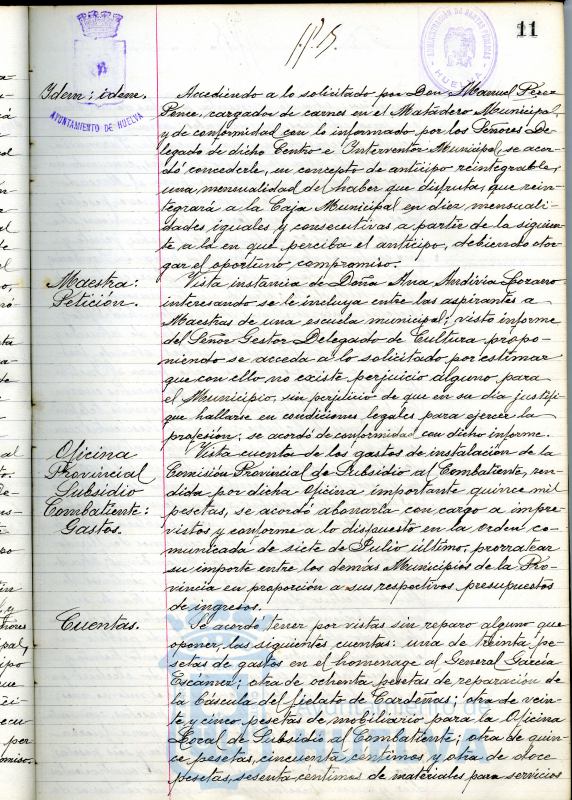 11
AYUNTAMIENTO DE HUELVA
HUELVA
Idem: idem.
Accediendo a lo solicitado por Don Manuel Pérez
Ponce, cargador de carnes en el Matadero Municipal,
y de conformidad con lo informado por los Señores De-
legado de dicho Centro e Interventor Municipal, se acor-
dó concederle, en concepto de anticipo reintegrable,
una mensualidad del haber que disfruta, que rein-
tegrará a la Caja Municipal en diez mensuali-
dades iguales y consecutivas a partir de la siguien-
te a la en que perciba el anticipo, debiendo otor-
gar el oportuno compromiso.
Maestra:
Petición.
Vista instancia de Doña Ana Andivia Lorano
interesando se le incluya entre las aspirantes a
Maestras de una escuela municipal; visto informe
del Señor Gestor Delegado de Cultura propo-
niendo se acceda a lo solicitado por estimar
que con ello no existe perjuicio alguno para
el Municipio, sin perjuicio de que en su día justifi-
que hallarse en condiciones legales para ejercer la
profesión; se acordó de conformidad con dicho informe.
Oficina
Provincial
Subsidio
Combatiente:
Gastos.
Vista cuenta de los gastos de instalación de la
Comisión Provincial de Subsidio al Combatiente, ren-
dida por dicha Oficina importante quince mil
pesetas, se acordó abonarla con cargo a impre-
vistos y conforme a lo dispuesto en la orden co-
municada de siete de Julio último, prorratear
su importe entre los demás Municipios de la Pro-
vincia en proporción a sus respectivos presupuestos
de ingresos.
Cuentas.
Se acordó tener por vistas sin reparo alguno que
oponer, las siguientes cuentas: una de treinta pe-
setas de gastos en el homenage al General García
Escámez; otra de ochenta pesetas de reparación de
la báscula del fielato de Cardeñas; otra de vein-
te y cinco pesetas de mobiliario para la Oficina
Local de Subsidio al Combatiente; otra de quin-
ce pesetas cincuenta céntimos y otra de doce
pesetas sesenta céntimos de materiales para servicios
Ayuntamiento de
HUELVA